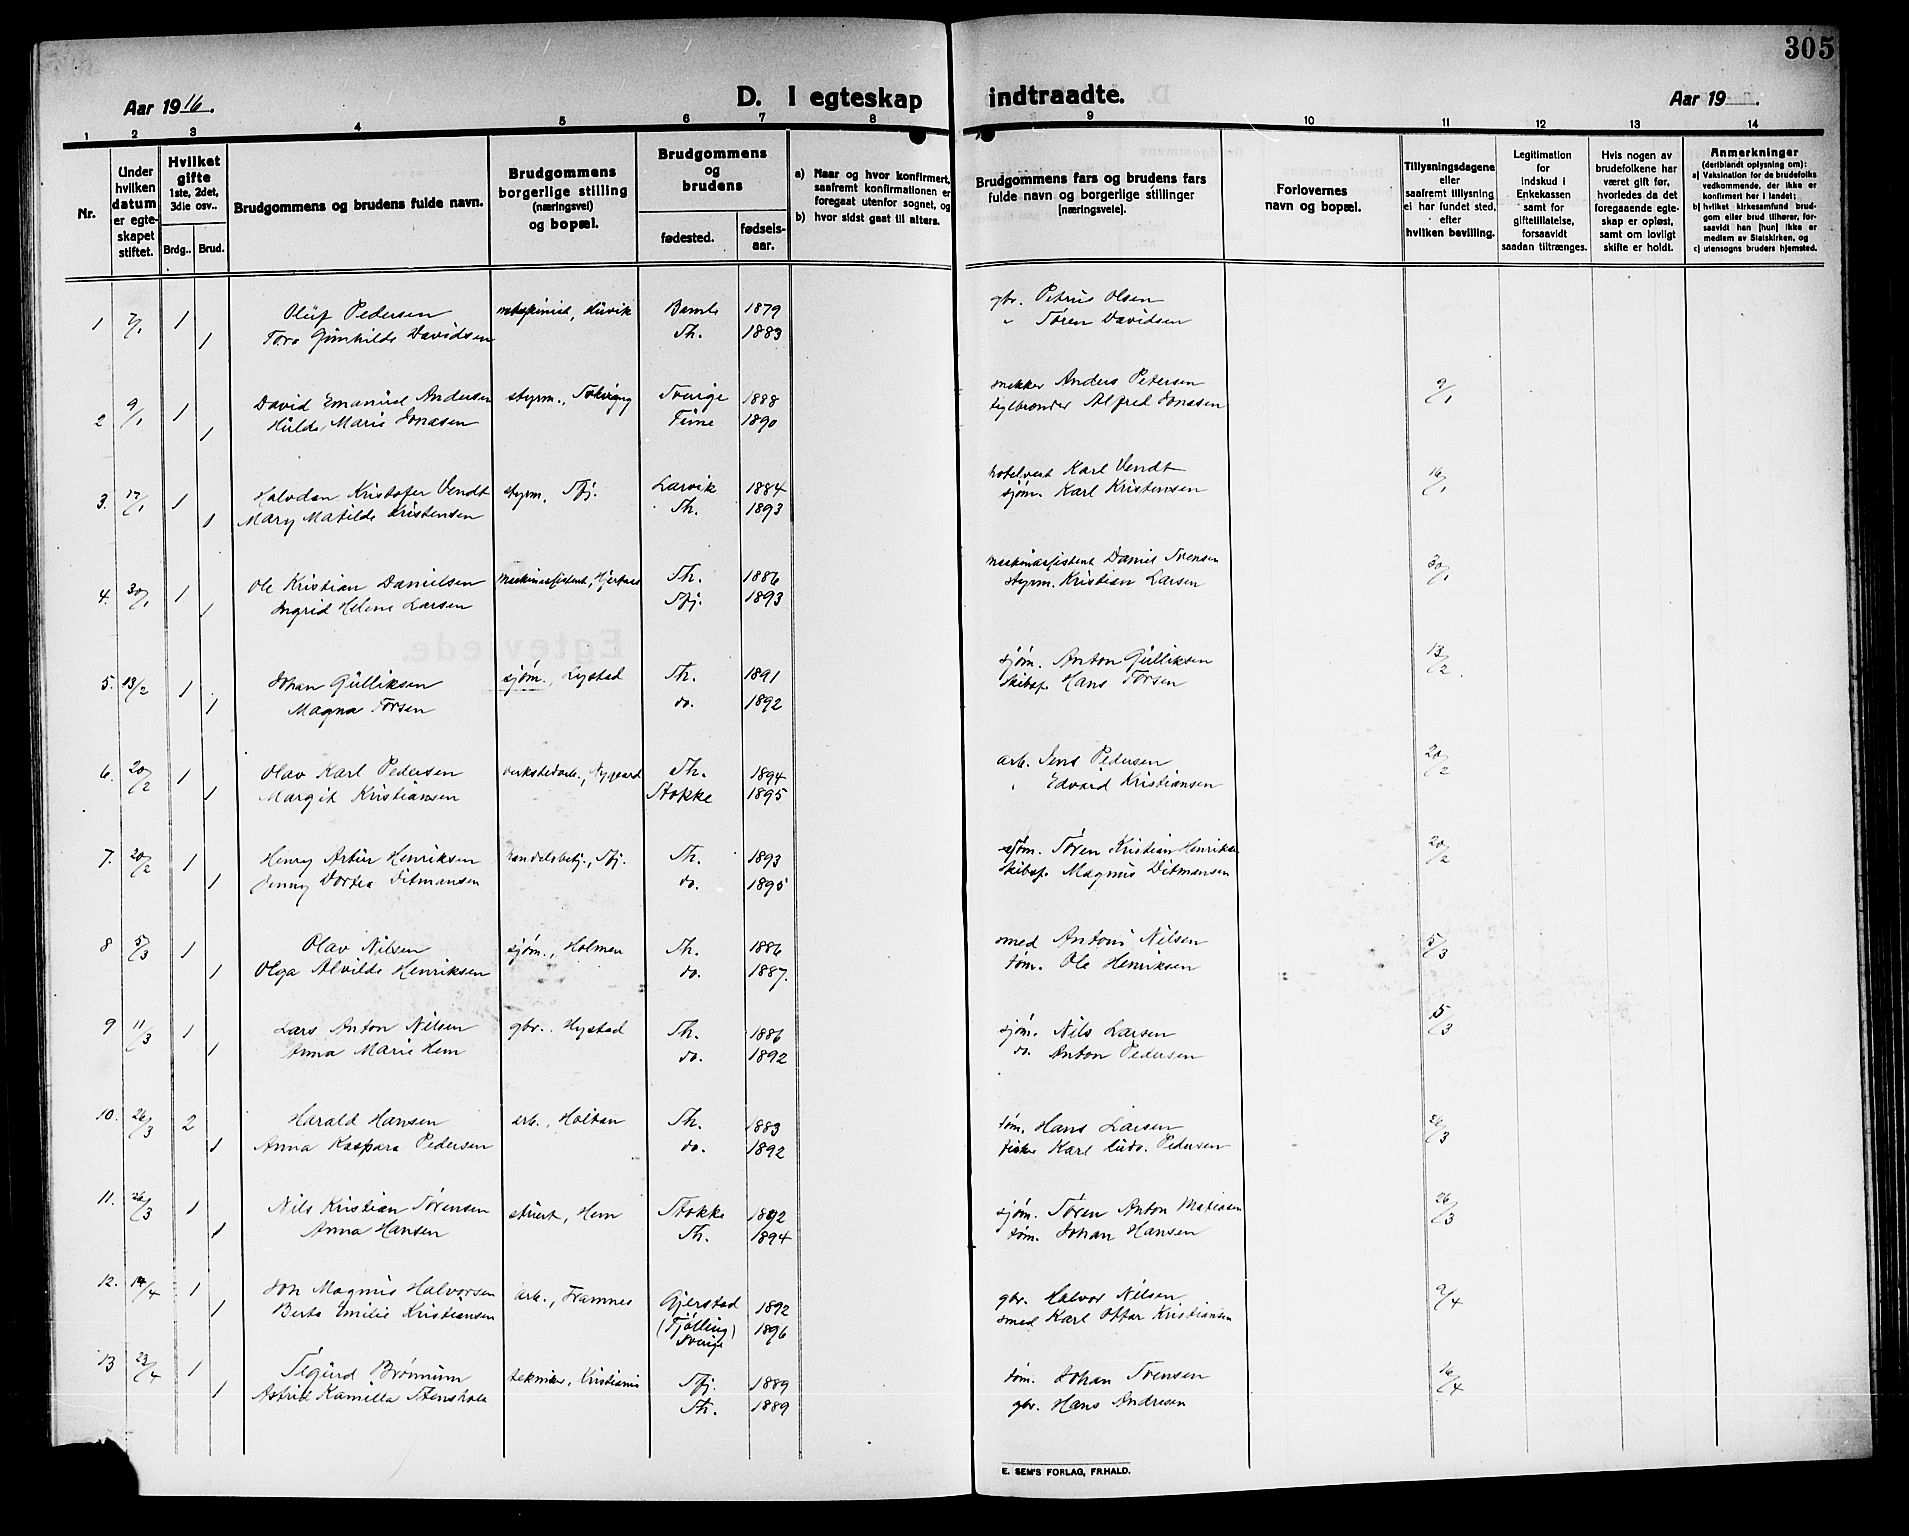 305
Aar 1916.
D. I egteskap
indtraadte.
Aar 19 .
1 2 3 4 5 6 7 8 9 10 11 12 13 14
Nr.
Under hvilken datum er egteskapet stiftet.
Hvilket gifte 1ste, 2det, 3die osv..
Brdg.. Brud.
Brudgommens og brudens fulde navn.
Brudgommens borgerlige stilling (næringsvei) og bopæl.
Brudgommens og brudens
fødested. fødselsaar.
a) Naar og hvor konfirmert, saafremt konfirmationen er foregaat utenfor sognet, og
b) hvor sidst gaat til alters.
Brudgommens fars og brudens fars fulde navn og borgerlige stillinger (næringsveie).
Forlovernes navn og bopæl.
Tillysningsdagene eller saafremt tillysning ei har fundet sted, efter hvilken bevilling.
Legitimation for indskud i Enkekassen samt for giftetillatelse, forsaavidt saadan tiltrænges.
Hvis nogen av brudefolkene har været gift før, hvorledes da det foregaaende egteskap er opløst, samt om lovligt skifte er holdt.
Anmerkninger (deriblandt oplysning om):
a) Vaksination for de brudefolks vedkommende, der ikke er konfirmert her i landet;
b) hvilket kirkesamfund brudgom eller brud tilhører, forsaavidt han [hun] ikke er medlem av Statskirken, og
c) utensogns bruders hjemsted.
1 7/1 1 Oluf Pedersen maskinist, Bamle 1879 gbr. Petrus Olsen
1 Tora Gunhilde Davidsen Th. 1883 " Søren Davidsen
2 9/1 1 David Emanuel Andersen styrm., Solvang Sverige 1888 snekker Anders Petersen 9/1
1 Hulda Marie Jonasen Time 1890 teglbrænder Alfred Jonasen
3. 17/1 1 Halvdan Kristofer Vendt styrm. Sfj. Larvik 1884 hotelvert Karl Vendt 16/1
1 Mary Matilde Kristensen Th. 1893 sjøm. Karl Kristensen
4. 30/1 1 Ole Kristian Danielsen maskinassistent, Hjertnes Th. 1886 maskinassistent Daniel Sørensen 30/1
1 Ingrid Helene Larsen Sfj. 1893 styrm. Kristian Larsen
5. 13/2 1 Johan Gulliksen sjøm., Lystad Th. 1891 sjøm. Anton Gulliksen 13/2
1 Magna Torsen do. 1892 skibsf. Hans Torsen
6. 20/2 1 Olav Karl Pedersen verkstedarb., Nygaard Th. 1894 arb. Jens Pedersen 20/2
1 Margit Kristiansen Stokke 1895 " Edvard Kristiansen
7. 20/2 1 Henry Artur Henriksen handelsbetj., Sfj. Th. 1893 sjøm. Søren Kristian Henriksen 20/2
1 Jenny Dortea Ditmansen do. 1895 skibsf. Magnus Ditmansen
8 5/3 1 Olav Nilsen sjøm., Holmen Th. 1886 smed Antoni Nilsen 5/3
1 Olga Alvilde Henriksen do. 1887. tøm. Ole Henriksen
9 11/3 1 Lars Anton Nilsen gbr. Hystad Th. 1886 sjøm. Nils Larsen 5/3
1 Anna Marie Hem do. 1892 do. Anton Pedersen
10. 26/3 2 Harald Hansen arb., Holtan Th. 1883 tøm. Hans Larsen 26/3
1 Anna Kaspara Pedersen do. 1892 fisker Karl Ludv. Pedersen
11. 26/3 1 Nils Kristian Sørensen stuert, Hem Stokke 1892 sjøm. Søren Anton Matiasen 26/3
1 Anna Hansen Th. 1894 tøm. Johan Hansen
12. 14/4 1 Jon Magnus Halvorsen arb., Framnes Gjerstad 1892 gbr. Halvor Nilsen 9/4
1 Berta Emilie Kristiansen (Tjølling) Sverige 1896 smed Karl Oskar Kristiansen
13 23/4 1 Sigurd Brønnum tekniker, Kristiania Sfj. 1889 tøm. Johan Sørensen 16/4
1 Astrid Kamilla Stensholt Th. 1889 gbr. Hans Andresen
E. SEM'S FORLAG, FR.HALD.